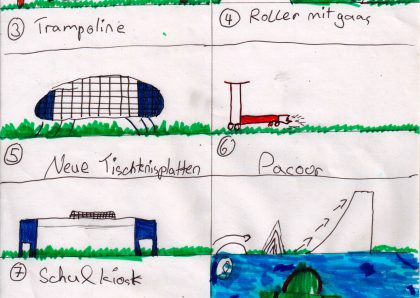 ③ Trampoline
④ Roller mit gaas
⑤ Neue Tischtenisplatten
⑥ Pacoor
⑦ Schulkiosk